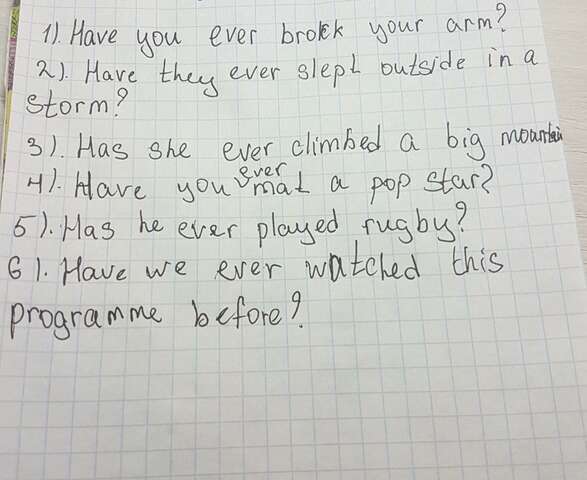 1). Have you ever brokk your arm?
2). Have they ever slept outside in a
storm?
3). Has she ever climbed a big mountain
4). Have you ever mat a pop star?
5). Has he ever played rugby?
6). Have we ever watched this
programme before?